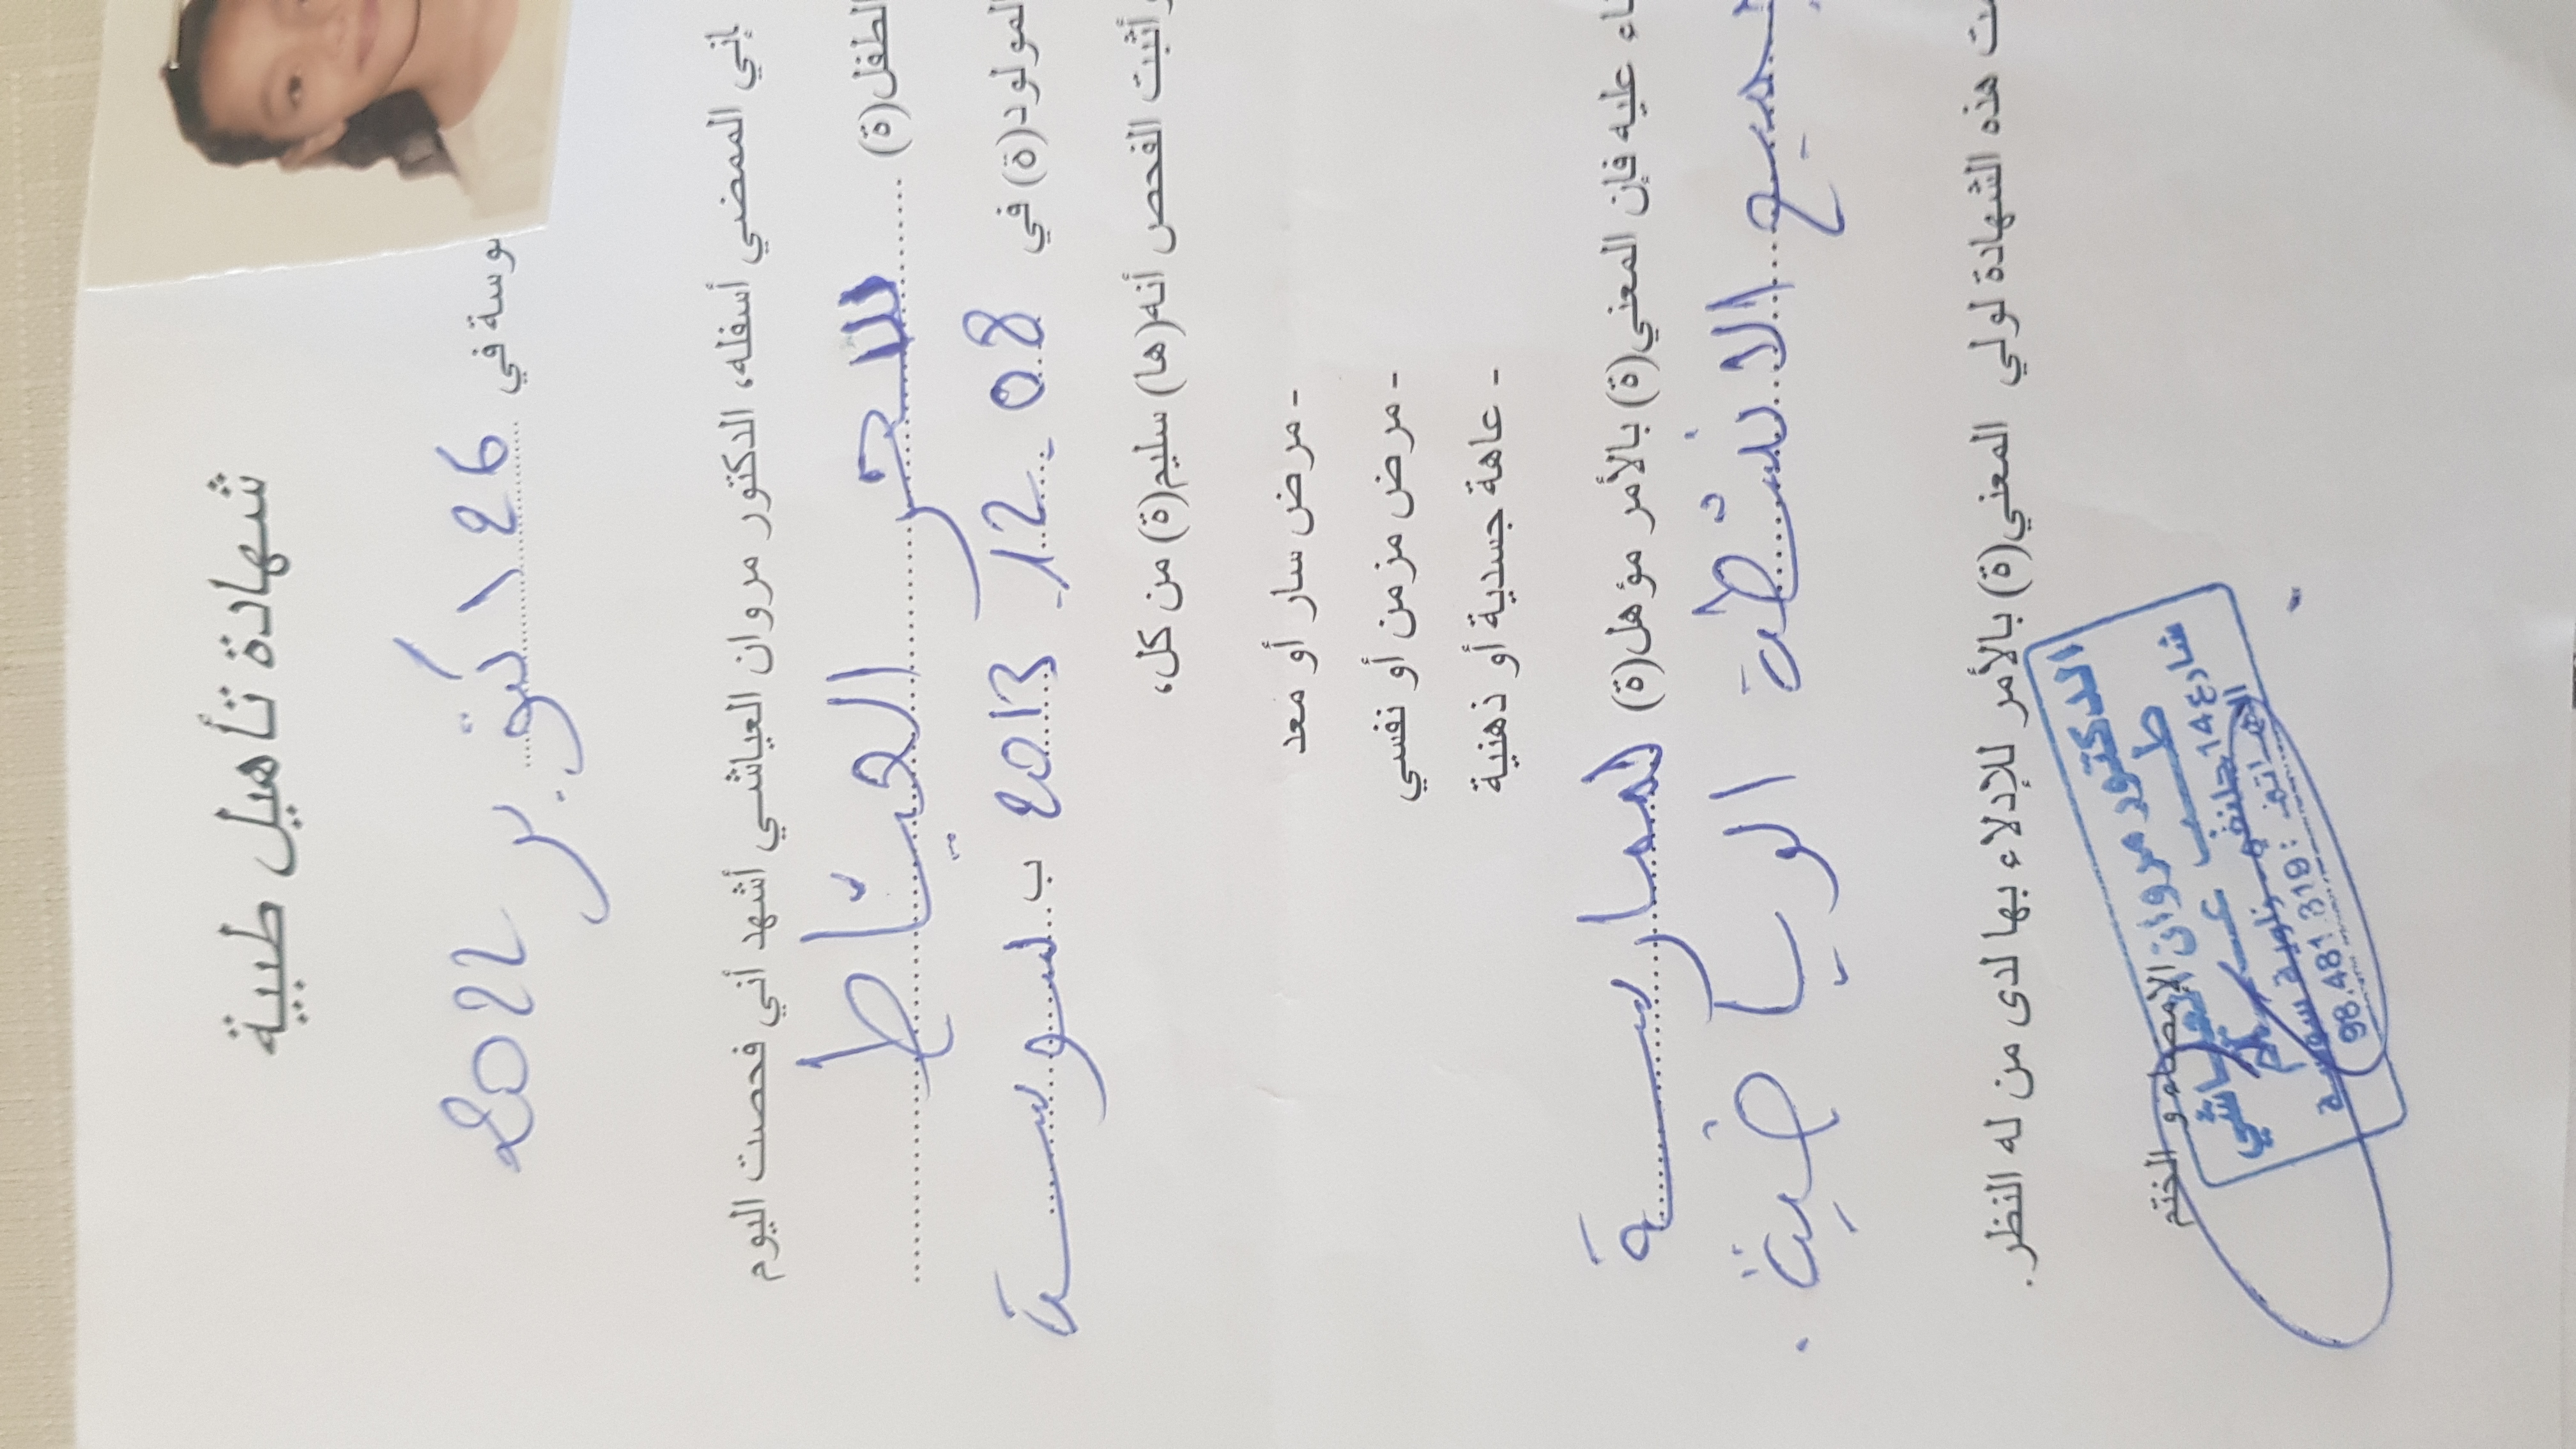 شهادة تأهيل طبية
وسة في 26 اكتوبر 2022
إني الممضي أسفله، الدكتور مروان العياشي أشهد أني فحصت اليوم
الطفل(ة)
المولود(ة) في 08 - 12 - 2013 ب سوسة
أثبت الفحص أنه(ها) سليم(ة) من كل،
- مرض سار أو معد
- مرض مزمن أو نفسي
- عاهة جسدية أو ذهنية
اء عليه فإن المعني(ة) بالأمر مؤهل(ة) لممارسة
جميع الانشطة الرياضية .
ت هذه الشهادة لولي المعني(ة) بالأمر للإدلاء بها لدى من له النظر.
الإمضاء و الختم
الدكتور مروان العياشي
طب عام
شارع 14 جانفي
الهاتف : 98.481.319